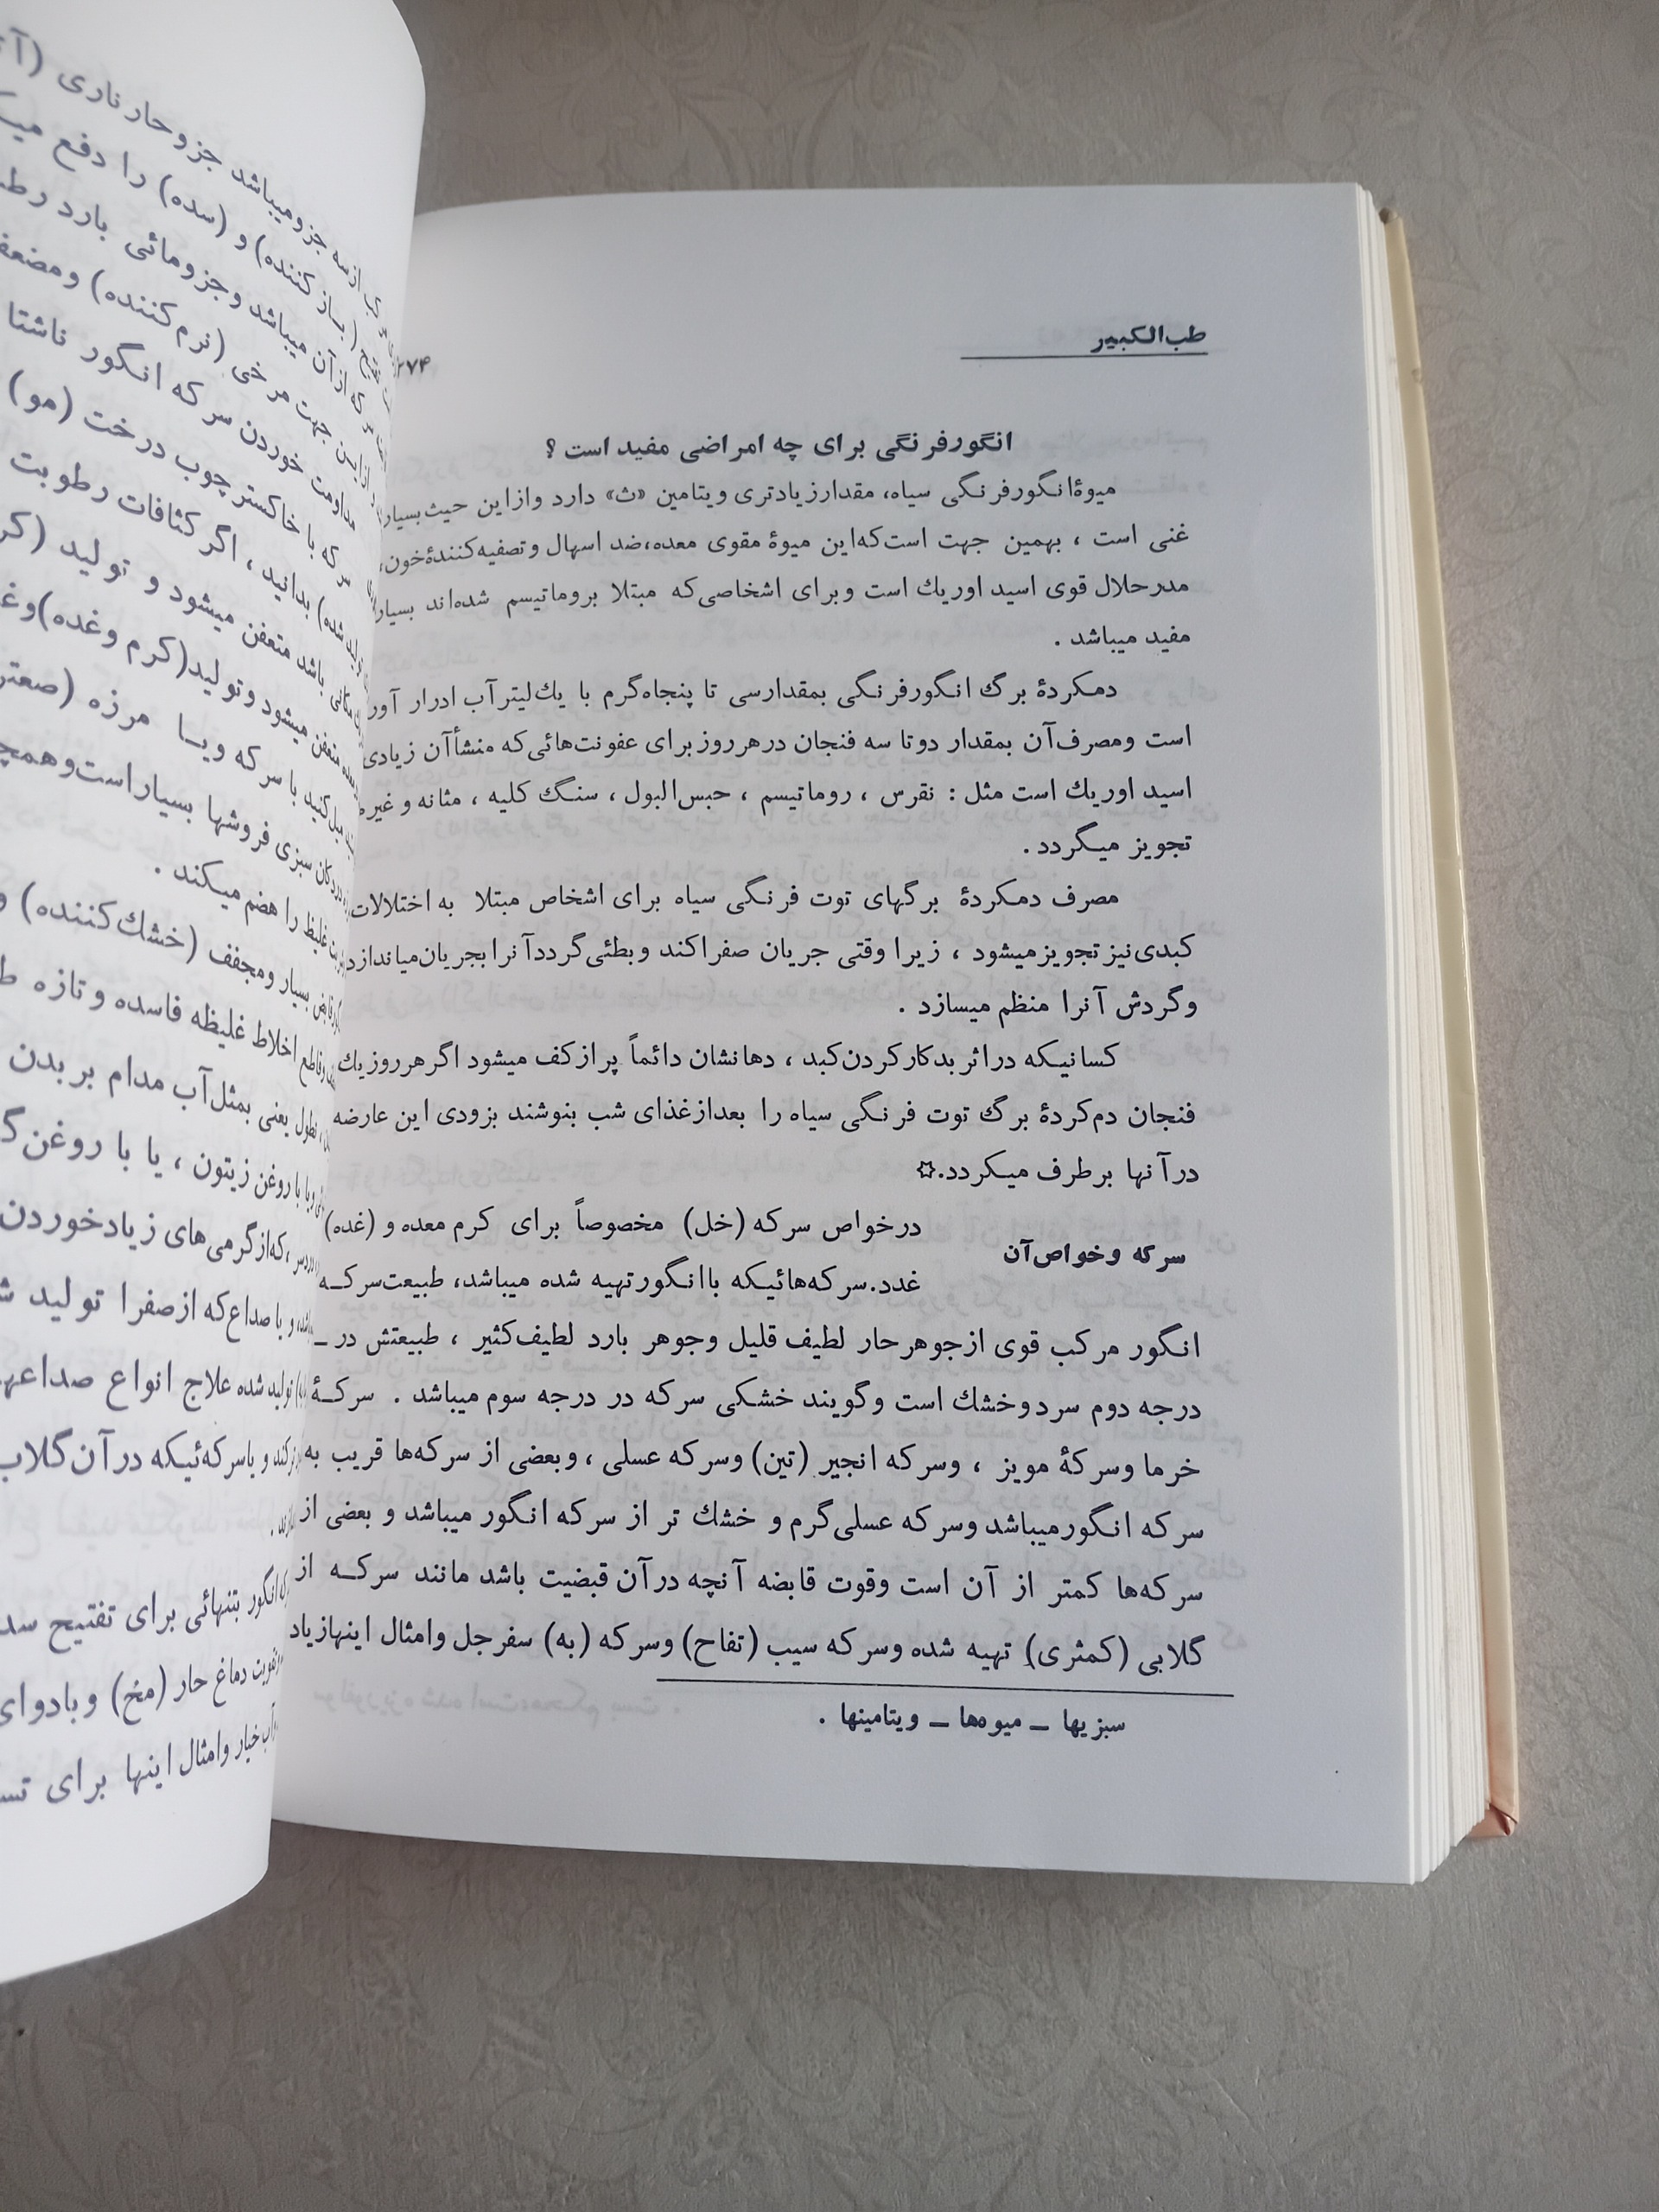 طب‌الکبیر
۲۷۴
انگورفرنگی برای چه امراضی مفید است ؟
میوهٔ انگورفرنگی سیاه، مقدارزیادتری ویتامین «ث» دارد وازاین حیث بسیار
غنی است ، بهمین جهت است‌که‌این میوهٔ مقوی معده،ضد اسهال وتصفیه‌کنندهٔخون،
مدرحلال قوی اسید اوریك است وبرای اشخاصی‌که مبتلا بروماتیسم شده‌اند بسیار
مفید میباشد .
دمکردهٔ برگ انگورفرنگی بمقدارسی تا پنجاه‌گرم با یك‌لیترآب ادرار آور
است ومصرف‌آن بمقدار دوتا سه فنجان درهرروزبرای عفونت‌هائی‌که منشأآن زیادی
اسید اوریك است مثل : نقرس ، روماتیسم ، حبس‌البول ، سنگ کلیه ، مثانه وغیره
تجویز میگردد .
مصرف دمکردهٔ برگهای توت فرنگی سیاه برای اشخاص مبتلا به اختلالات
کبدی‌نیزتجویزمیشود ، زیرا وقتی جریان صفراکند وبطئی‌گرددآنرابجریان‌میاندازد
وگردش آنرا منظم میسازد .
کسانیکه دراثربدکارکردن‌کبد ، دهانشان دائماً پرازکف میشود اگرهرروزیك
فنجان دم‌کردهٔ برگ توت فرنگی سیاه را بعدازغذای شب بنوشند بزودی این عارضه
درآنها برطرف میکردد.✩
سرکه وخواص‌آن
درخواص سرکه (خل) مخصوصاً برای کرم معده و (غده)
غدد.سرکه‌هائیکه باانگورتهیه شده میباشد، طبیعت‌سرکه
انگور مرکب قوی ازجوهرحار لطیف قلیل وجوهر بارد لطیف‌کثیر ، طبیعتش در ـ
درجه دوم سردوخشك است وگویند خشکی سرکه در درجه سوم میباشد . سرکهٔ
خرما وسرکهٔ مویز ، وسرکه انجیر (تین) وسرکه عسلی ، وبعضی از سرکه‌ها قریب به
سرکه انگورمیباشد وسرکه عسلی‌گرم و خشك تر از سرکه انگور میباشد و بعضی از
سرکه‌ها کمتر از آن است وقوت قابضه آنچه درآن قبضیت باشد مانند سرکه از
گلابی (کمثری) تهیه شده وسرکه سیب (تفاح) وسرکه (به) سفرجل وامثال اینهازیاد
سبزیها ـ میوه‌ها ـ ویتامینها .
ازسه جزومیباشد جزوحارناری
(بازکننده) و (سده) را دفع
که ازآن میباشد وجزومائی بارد
ازاین جهت مرخی (نرم‌کننده)
مداومت خوردن سرکه انگور ناشتا
سرکه با خاکستر چوب درخت (مو)
بدانید ، اگرکثافات رطوبت
باشد متعفن میشود و تولید
متعفن میشود وتولید(کرم وغده)
میل‌کنید با سرکه ویا مرزه
دردکان سبزی فروشها بسیاراست
غلیظ را هضم میکند .
بسیار ومجفف (خشك‌کننده)
وقاطع اخلاط غلیظه فاسده وتازه
یعنی بمثل‌آب مدام بر بدن
ویا با روغن زیتون ، یا با روغن
،که‌ازگرمی‌های زیادخوردن
و یا صداع‌که ازصفرا تولید
تولید شده علاج انواع
و یاسرکه‌ئیکه درآن
انگور بتنهائی برای تفتیح
دماغ حار (مخ)
خیار وامثال اینها برای